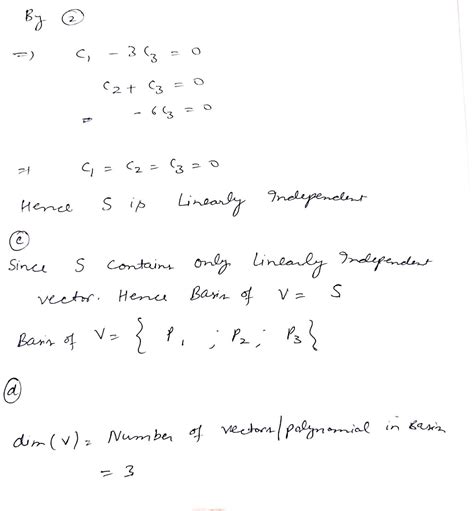 By ②
=> C₁ - 3C₃ = 0
C₂ + C₃ = 0
= - 6C₃ = 0
=> C₁ = C₂ = C₃ = 0
Hence S is Linearly Independent
ⓒ
Since S contains only Linearly Independent
vector. Hence Basis of V = S
Basis of V = { P₁ ; P₂ ; P₃ }
ⓓ
dim(V) = Number of vectors/polynomial in Basis
= 3